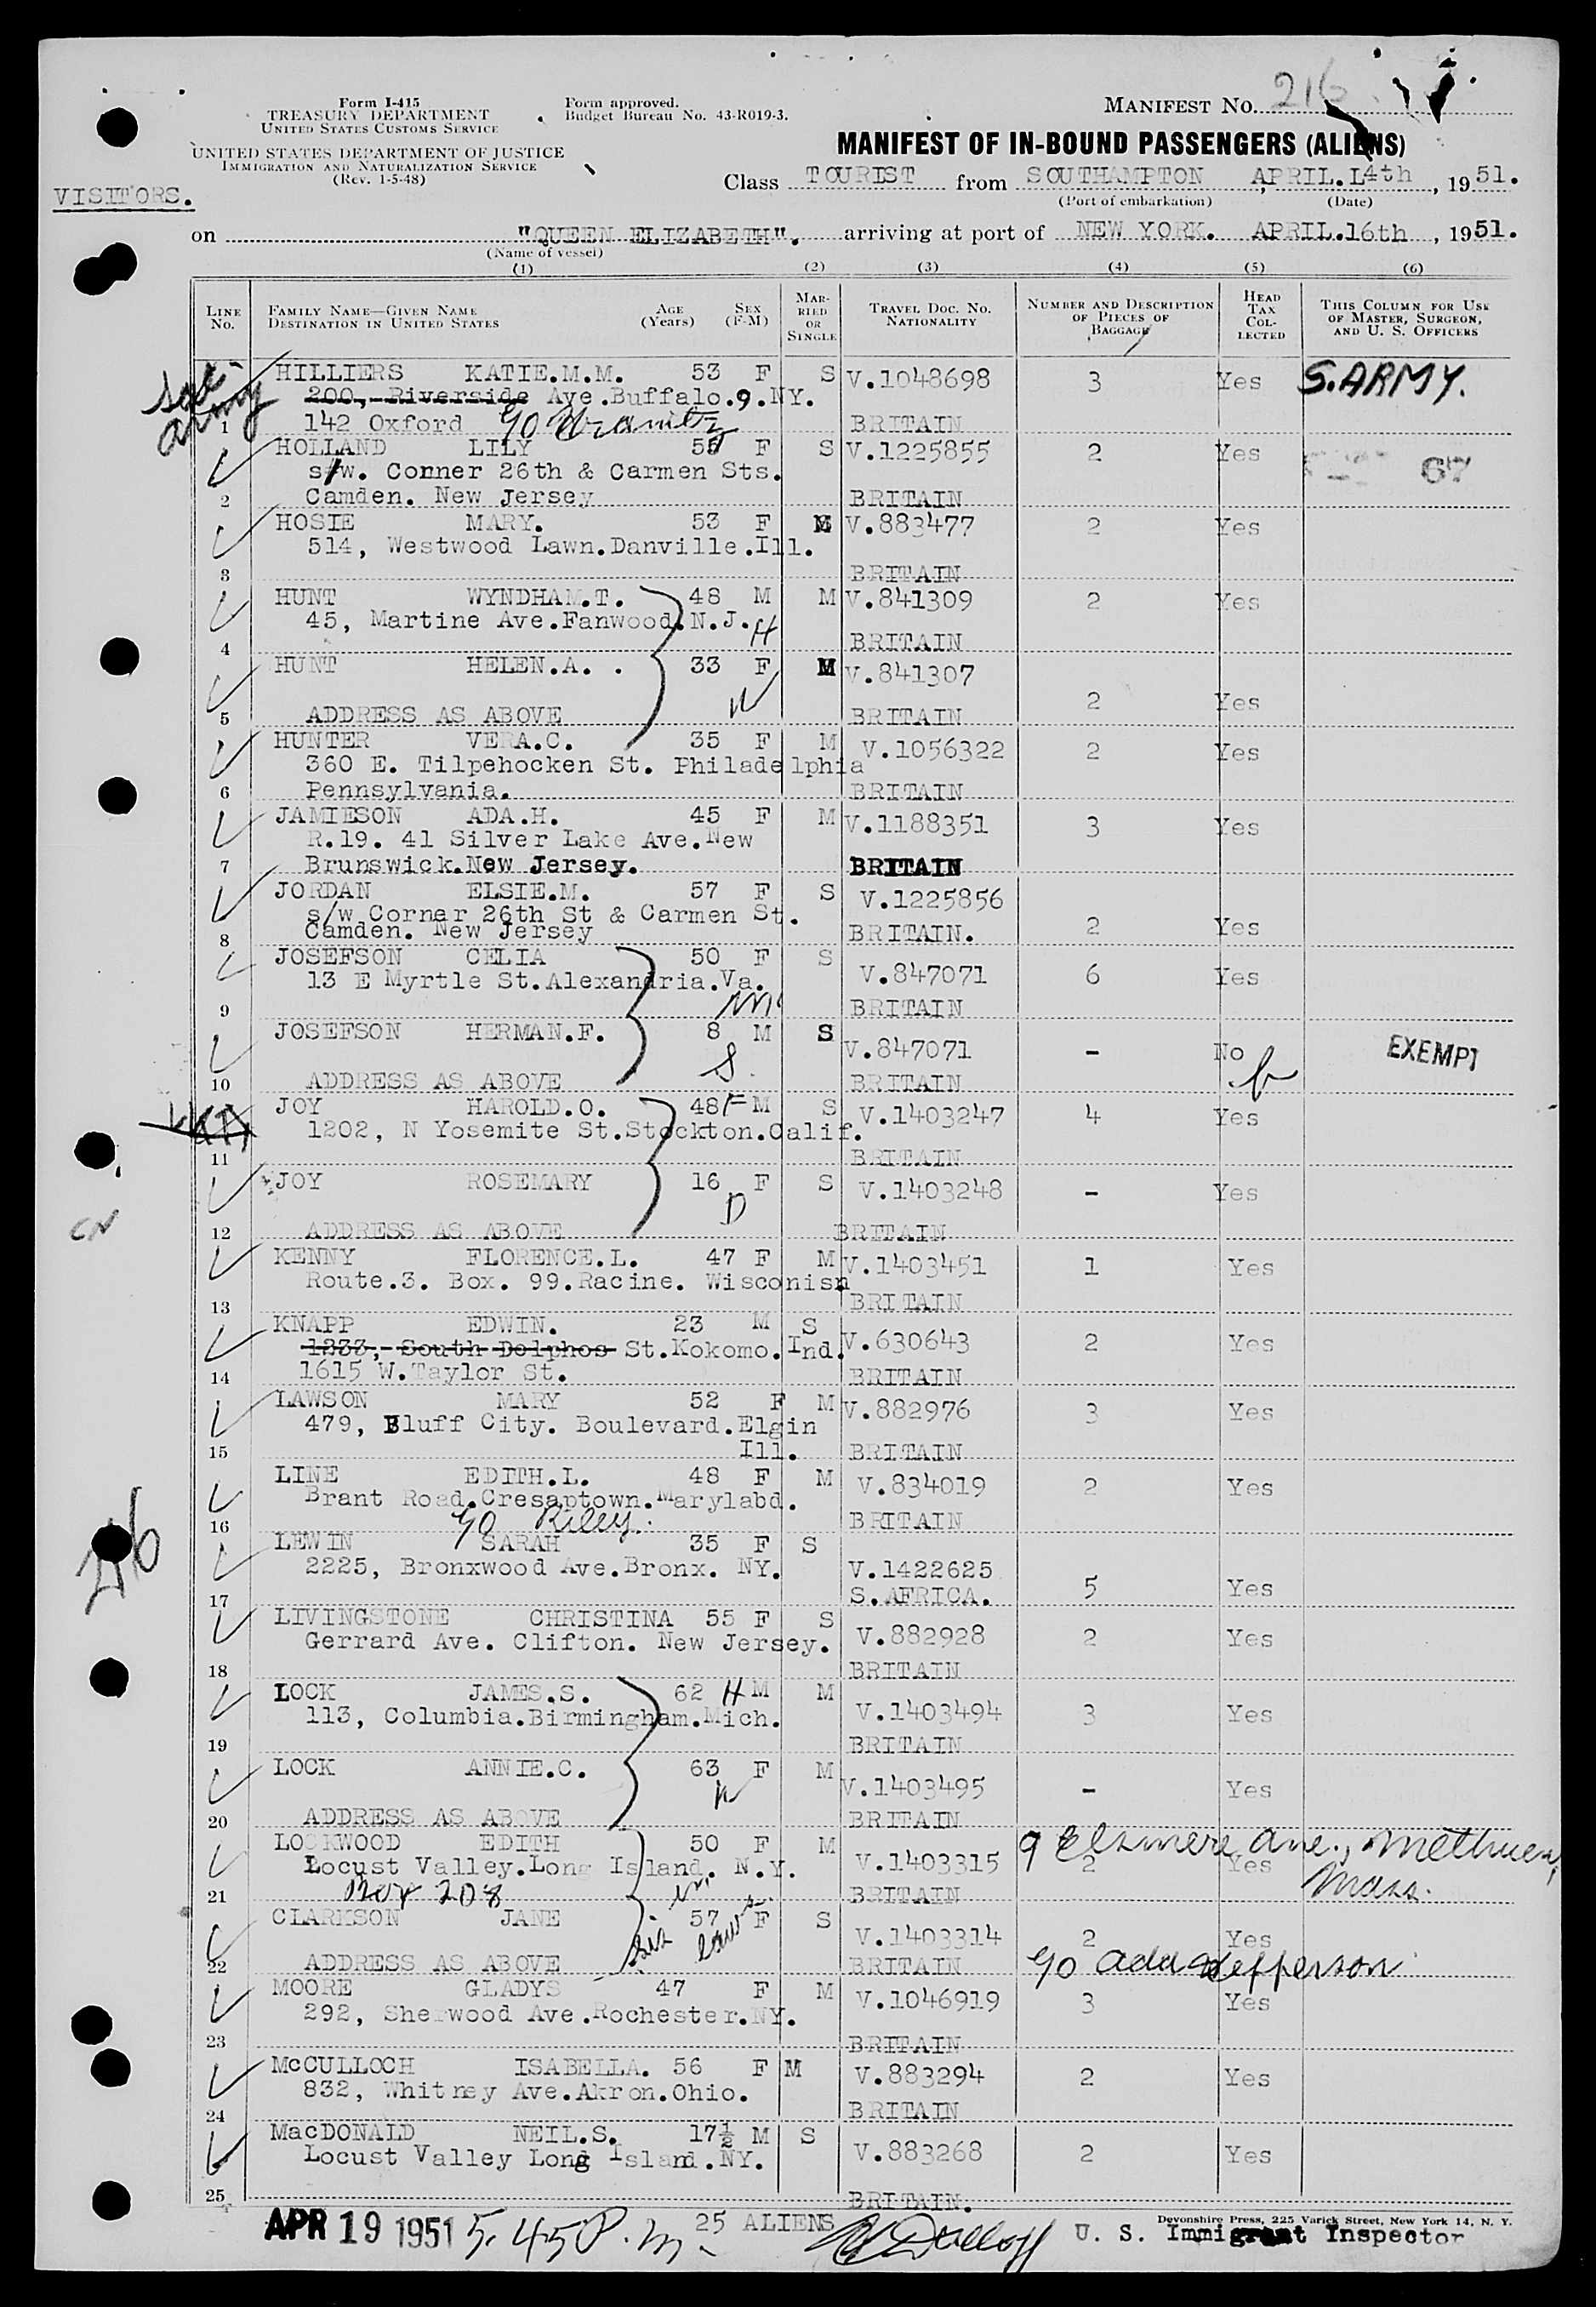 Form I-415
TREASURY DEPARTMENT
UNITED STATES CUSTOMS SERVICE
Form approved.
Budget Bureau No. 43-R019-3.
MANIFEST No. 216
UNITED STATES DEPARTMENT OF JUSTICE
IMMIGRATION AND NATURALIZATION SERVICE
(Rev. 1-5-48)
MANIFEST OF IN-BOUND PASSENGERS (ALIENS)
VISITORS.
Class TOURIST from SOUTHAMPTON, APRIL.14th, 1951.
(Port of embarkation) (Date)
on "QUEEN ELIZABETH". arriving at port of NEW YORK. APRIL.16th, 1951.
(Name of vessel)
(1) (2) (3) (4) (5) (6)
LINE No. FAMILY NAME—GIVEN NAME DESTINATION IN UNITED STATES AGE (Years) SEX (F-M) MARRIED OR SINGLE TRAVEL DOC. NO. NATIONALITY NUMBER AND DESCRIPTION OF PIECES OF BAGGAGE HEAD TAX COLLECTED THIS COLUMN FOR USE OF MASTER, SURGEON, AND U. S. OFFICERS
Sal. Army
HILLIERS KATIE.M.M. 53 F S V.1048698 3 Yes S.ARMY.
200, Riverside Ave.Buffalo.9.NY.
1 142 Oxford BRITAIN
HOLLAND LILY 55 F S V.1225855 2 Yes 67
s/w. Conner 26th & Carmen Sts.
2 Camden. New Jersey BRITAIN
HOSIE MARY. 53 F M V.883477 2 Yes
514, Westwood Lawn.Danville.Ill.
3 BRITAIN
HUNT WYNDHAM.T. 48 M M V.841309 2 Yes
45, Martine Ave.Fanwood.N.J. H
4 BRITAIN
HUNT HELEN.A. . 33 F M V.841307 2 Yes
W
5 ADDRESS AS ABOVE BRITAIN
HUNTER VERA.C. 35 F M V.1056322 2 Yes
360 E. Tilpehocken St. Philadelphia
6 Pennsylvania. BRITAIN
JAMIESON ADA.H. 45 F M V.1188351 3 Yes
R.19. 41 Silver Lake Ave.New
7 Brunswick.New Jersey. BRITAIN
JORDAN ELSIE.M. 57 F S V.1225856 2 Yes
s/w Corner 26th St & Carmen St.
8 Camden. New Jersey BRITAIN.
JOSEFSON CELIA 50 F S V.847071 6 Yes
13 E Myrtle St.Alexandria.Va.
9 BRITAIN
JOSEFSON HERMAN.F. 8 M S V.847071 - No EXEMPT
S.
10 ADDRESS AS ABOVE BRITAIN
JOY HAROLD.O. 48 F M S V.1403247 4 Yes
1202, N Yosemite St.Stockton.Calif.
11 BRITAIN
JOY ROSEMARY 16 F S V.1403248 - Yes
D
CN
12 ADDRESS AS ABOVE BRITAIN
KENNY FLORENCE.L. 47 F M V.1403451 1 Yes
Route.3. Box. 99.Racine. Wisconisn
13 BRITAIN
KNAPP EDWIN. 23 M S V.630643 2 Yes
1233, South Dolphos St.Kokomo.Ind.
14 1615 W.Taylor St. BRITAIN
LAWSON MARY 52 F M V.882976 3 Yes
479, Bluff City. Boulevard.Elgin
15 Ill. BRITAIN
LINE EDITH.L. 48 F M V.834019 2 Yes
Brant Road.Cresaptown.Marylabd.
16 c/o Riley. BRITAIN
LEWIN SARAH 35 F S V.1422625 5 Yes
2225, Bronxwood Ave.Bronx. NY.
17 S.AFRICA.
216
LIVINGSTONE CHRISTINA 55 F S V.882928 2 Yes
Gerrard Ave. Clifton. New Jersey.
18 BRITAIN
LOCK JAMES.S. 62 H M M V.1403494 3 Yes
113, Columbia.Birmingham.Mich.
19 BRITAIN
LOCK ANNIE.C. 63 F M V.1403495 - Yes
W
20 ADDRESS AS ABOVE BRITAIN
LOCKWOOD EDITH 50 F M V.1403315 2 Yes 9 Elsmere Ave., Methuen, Mass.
Locust Valley.Long Island. N.Y.
21 Box 208 BRITAIN
CLARKSON JANE 57 F S V.1403314 2 Yes
sis in laws
22 ADDRESS AS ABOVE BRITAIN c/o Ada Jefferson
MOORE GLADYS 47 F M V.1046919 3 Yes
292, Sherwood Ave.Rochester.NY.
23 BRITAIN
McCULLOCH ISABELLA. 56 F M V.883294 2 Yes
832, Whitney Ave.Akron.Ohio.
24 BRITAIN
MacDONALD NEIL.S. 17½ M S V.883268 2 Yes
Locust Valley Long Island.NY.
25 BRITAIN.
APR 19 1951 5.45 P.m. 25 ALIENS
Devonshire Press, 225 Varick Street, New York 14, N. Y.
U. S. Immigrant Inspector